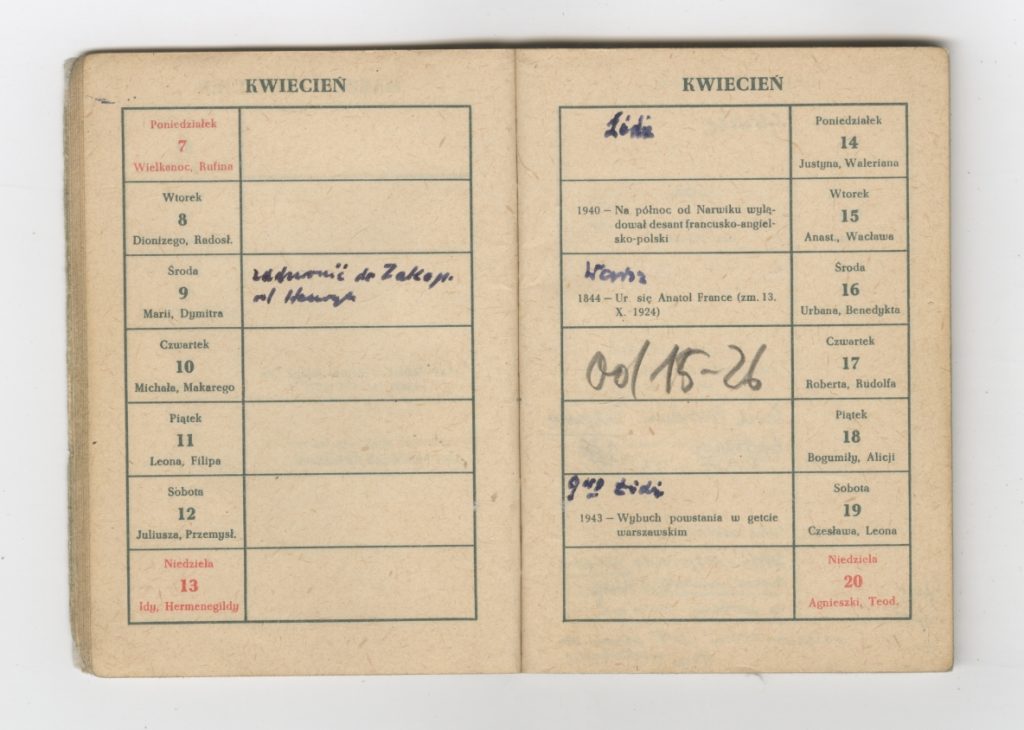 KWIECIEŃ
Poniedziałek
7
Wielkanoc, Rufina
Wtorek
8
Dionizego, Radosł.
Środa
9
Marii, Dymitra
zadzwonić do Zakop.
od Henryk
Czwartek
10
Michała, Makarego
Piątek
11
Leona, Filipa
Sobota
12
Juliusza, Przemysł.
Niedziela
13
Idy, Hermenegildy
KWIECIEŃ
Łódź
Poniedziałek
14
Justyna, Waleriana
1940 – Na północ od Narwiku wylą-
dował desant francusko-angiel-
sko-polski
Wtorek
15
Anast., Wacława
1844 – Ur. się Anatol France (zm. 13.
X. 1924)
Środa
16
Urbana, Benedykta
od 15-26
Czwartek
17
Roberta, Rudolfa
Piątek
18
Bogumiły, Alicji
Łódź
1943 – Wybuch powstania w getcie
warszawskim
Sobota
19
Czesława, Leona
Niedziela
20
Agnieszki, Teod.